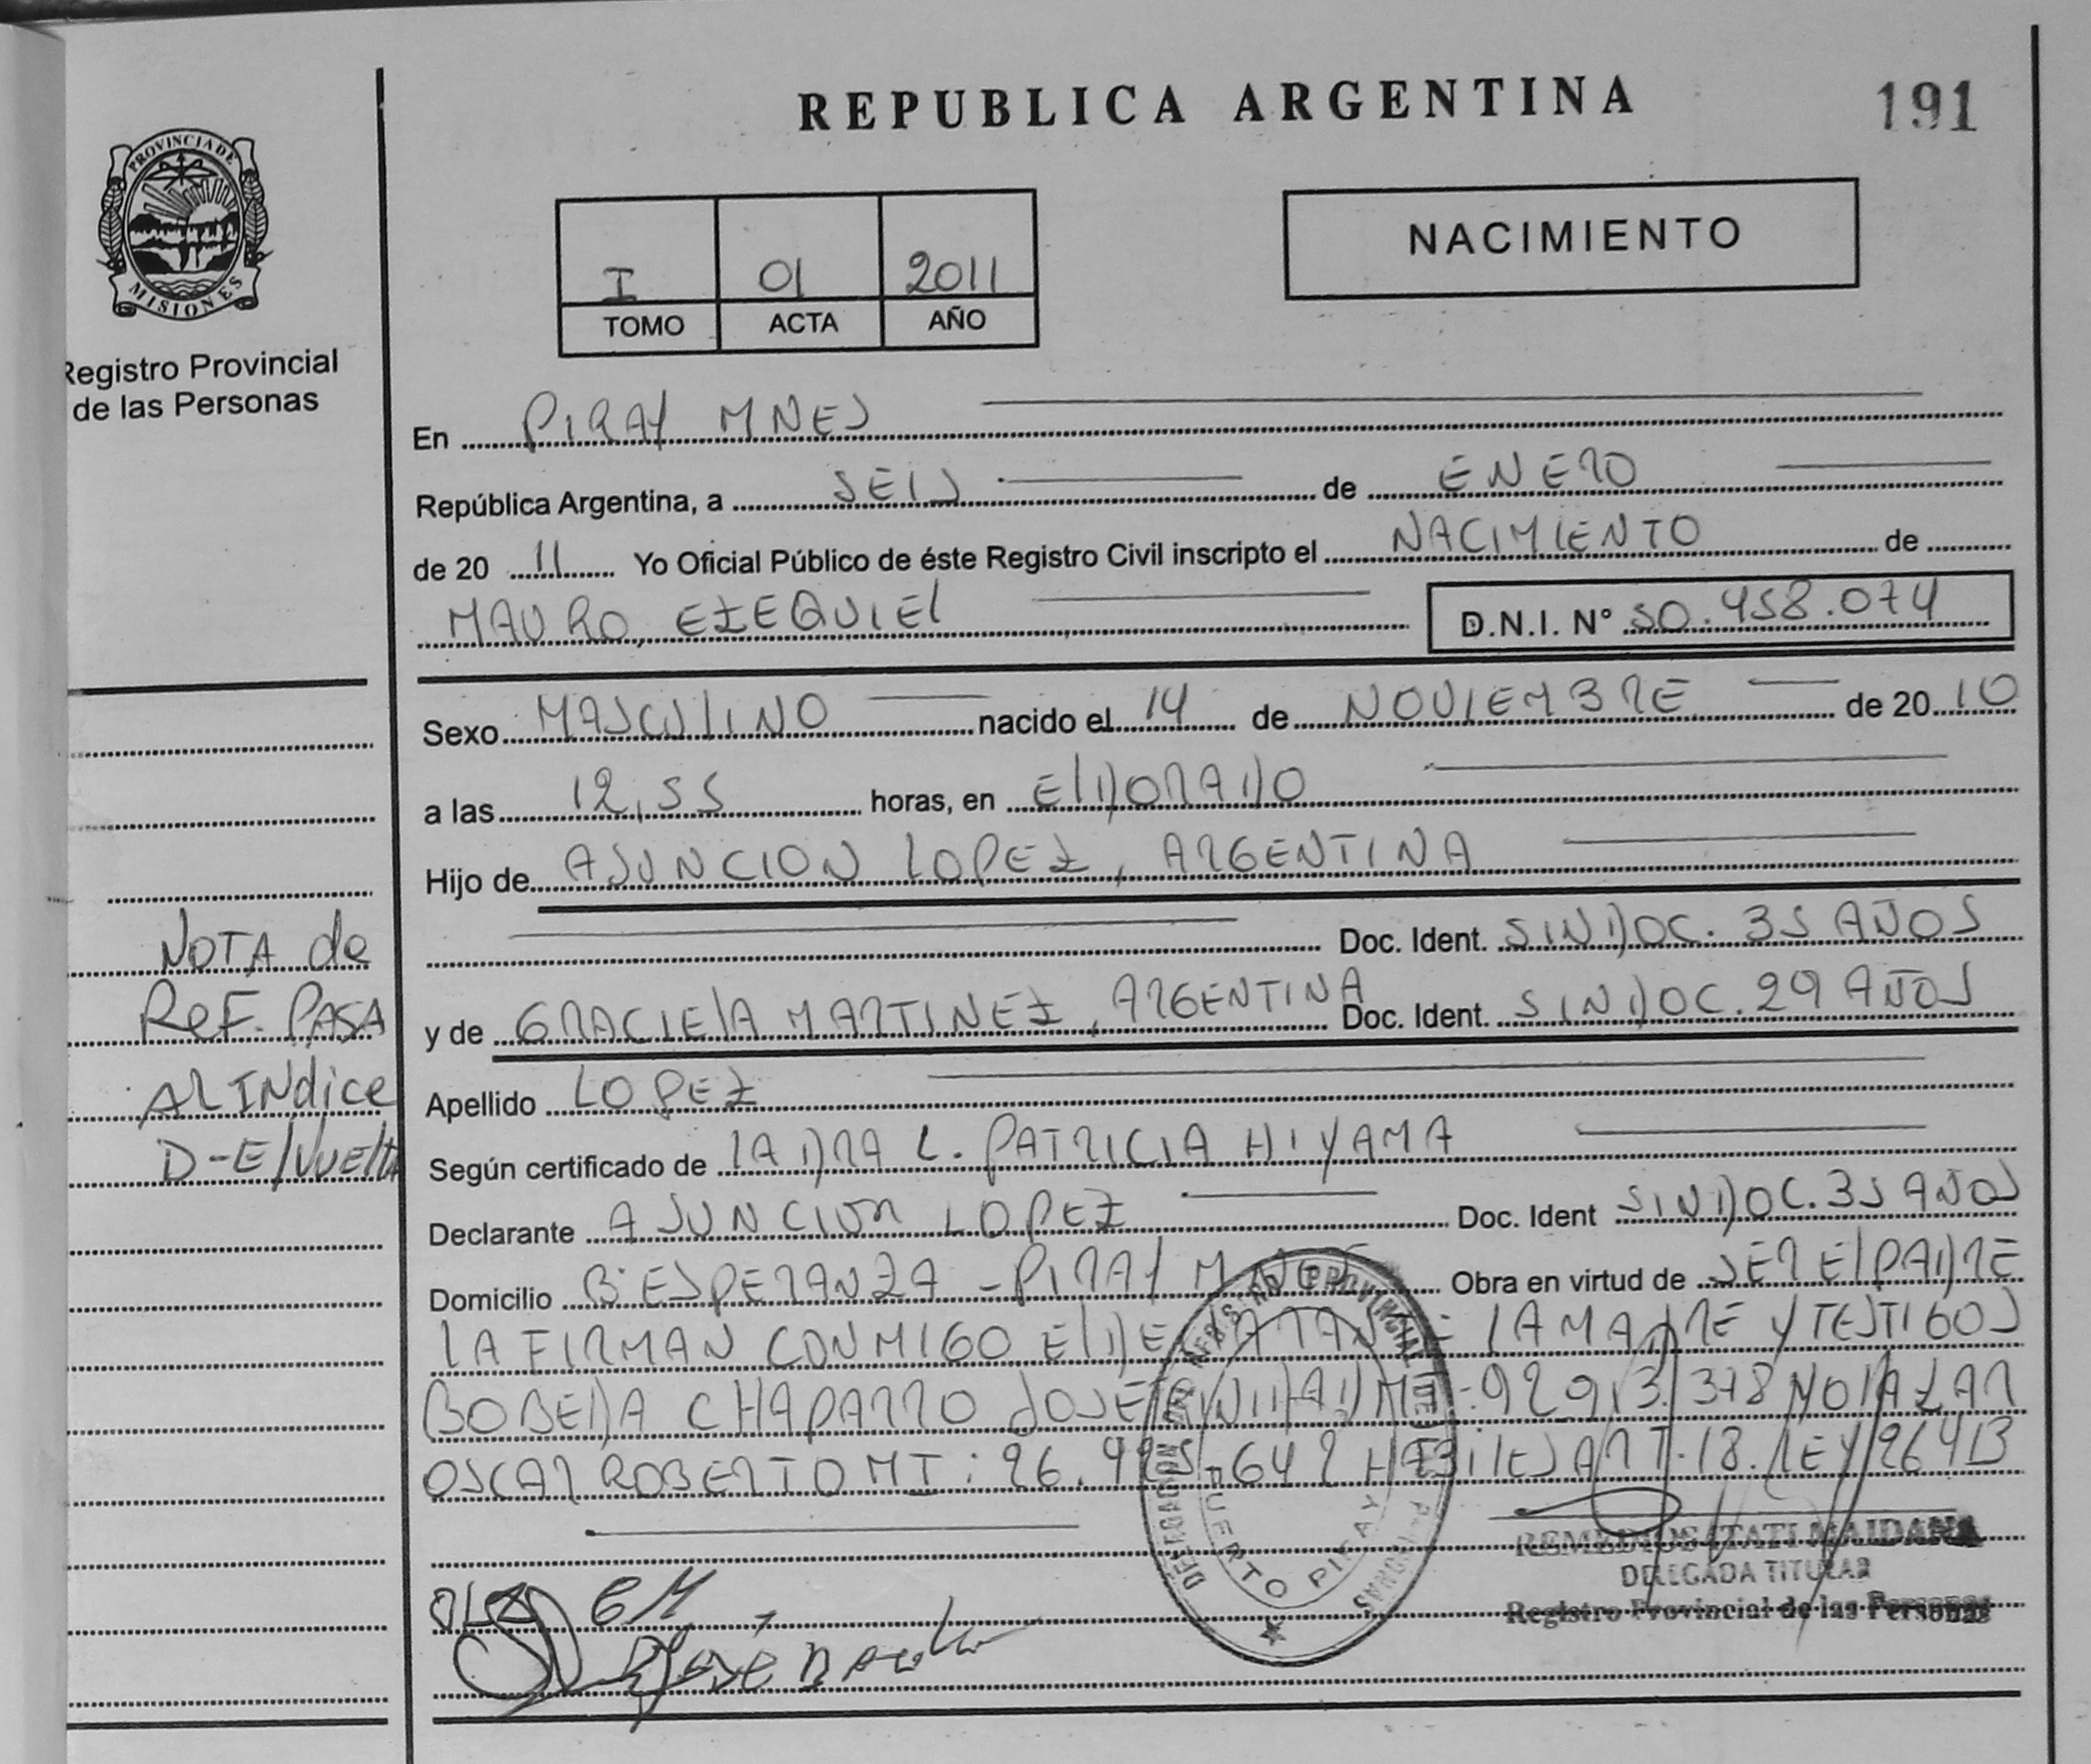 REPUBLICA ARGENTINA
191
PROVINCIA DE
MISIONES
Registro Provincial
de las Personas
I 01 2011
TOMO ACTA AÑO
NACIMIENTO
En PIRAY MNES
República Argentina, a SEIS de ENERO
de 20 11 Yo Oficial Público de éste Registro Civil inscripto el NACIMIENTO de
MAURO, EZEQUIEL
D.N.I. N° 50.458.074
Sexo MASCULINO nacido el 14 de NOVIEMBRE de 20 10
a las 12,55 horas, en ELDORADO
Hijo de ASUNCION LOPEZ, ARGENTINA
Doc. Ident. SIN DOC. 35 AÑOS
y de GRACIELA MARTINEZ, ARGENTINA Doc. Ident. SIN DOC. 29 AÑOS
Apellido LOPEZ
Según certificado de LA DRA L. PATRICIA HIYAMA
Declarante ASUNCION LOPEZ Doc. Ident SIN DOC. 35 AÑOS
Domicilio Bº ESPERANZA - PIRAY MNES Obra en virtud de SER EL PADRE
LA FIRMAN CONMIGO EL LA MADRE Y TESTIGOS
BOBEDA CHAPARRO JOSE
OSCAR ROBERTO MI: 26. HABILES ART. 18. LEY 26413
NOTA de
REF. PASA
AL INdice
D-E/VUELTA
REGISTRO PROVINCIAL DE LAS PERSONAS
DELEGACION
PUERTO PIRAY
REMEDIOS TATI MAIDANA
DELEGADA TITULAR
Registro Provincial de las Personas
OLA GM